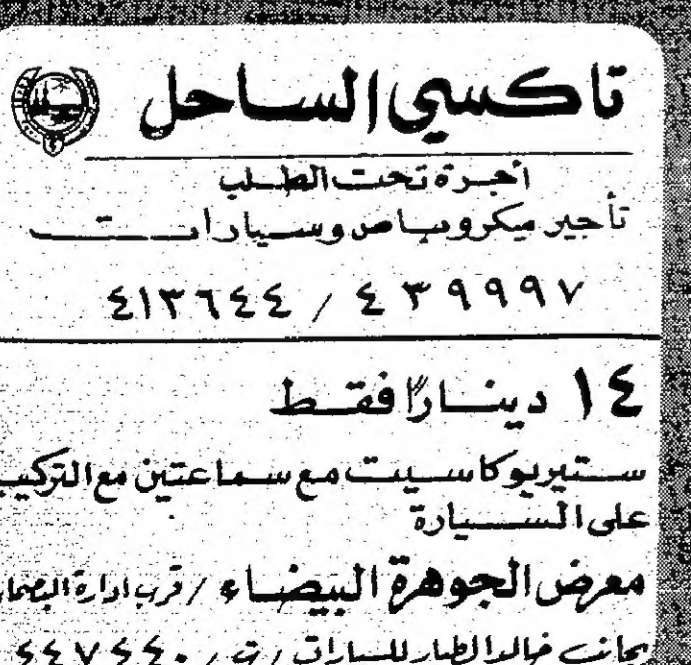 تاكسي الساحل
أجرة تحت الطلب
تأجير ميكروباص وسيارات
٤١٣٦٤٤ / ٤٣٩٩٩٧
١٤ دينارًا فقط
ستيريو كاسيت مع سماعتين مع التركيب
على السيارة
معرض الجوهرة البيضاء / قرب ادارة
بجانب خالد الطيار للسيارات / ت / ٤٤٧٤٤٠